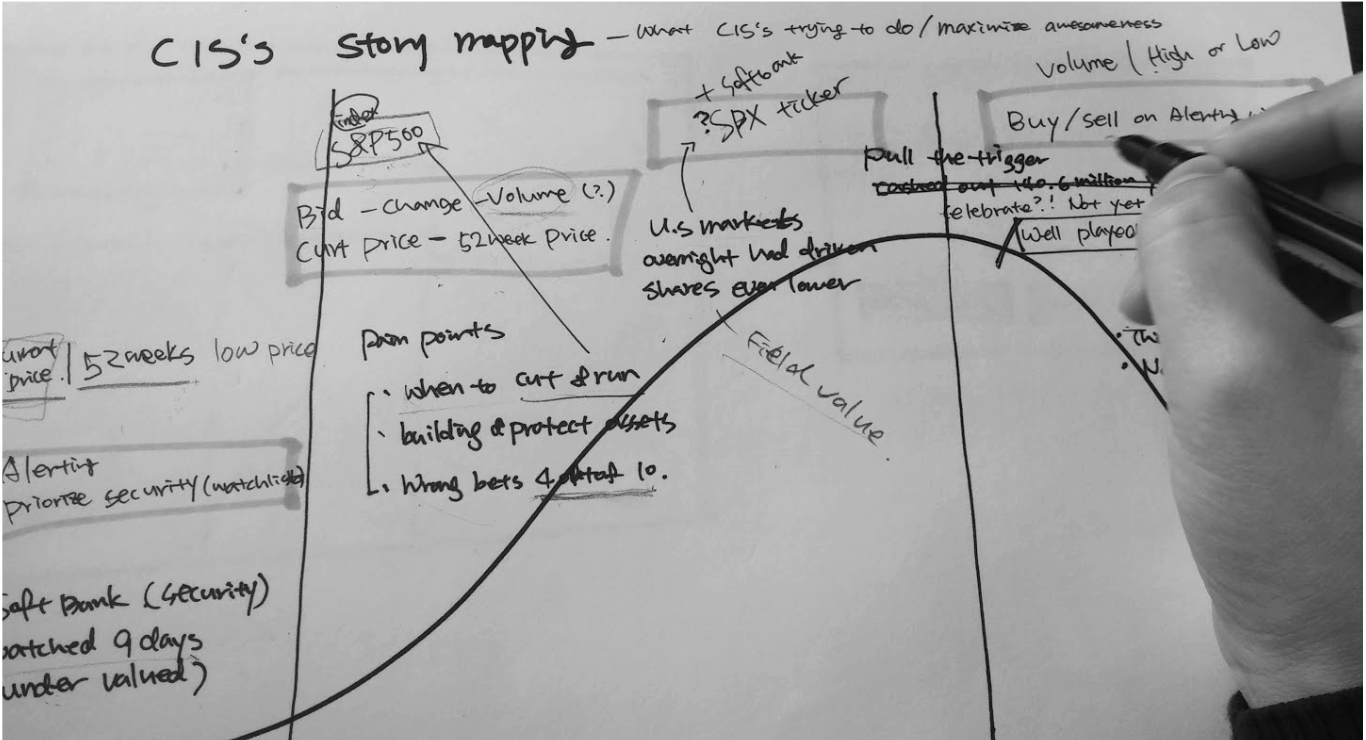 CIS's story mapping - what CIS's trying to do / maximize awesomeness
Volume / High or Low
index
S&P500
+ Softbank
?SPX ticker
Buy/sell on Alerting
Bid - change - Volume (?)
Curt price - 52week price.
pull the trigger
cashed out +40.6 million
celebrate?! Not yet
Well played
U.S markets
overnight had driven
shares even lower
Field value
price | 52 weeks low price
Pain points
· when to cut & run
· building & protect assets
· Wrong bets 4 out of 10.
Alerting
priorize security (watchlists)
Soft Bank (security)
watched 9 days
under valued)